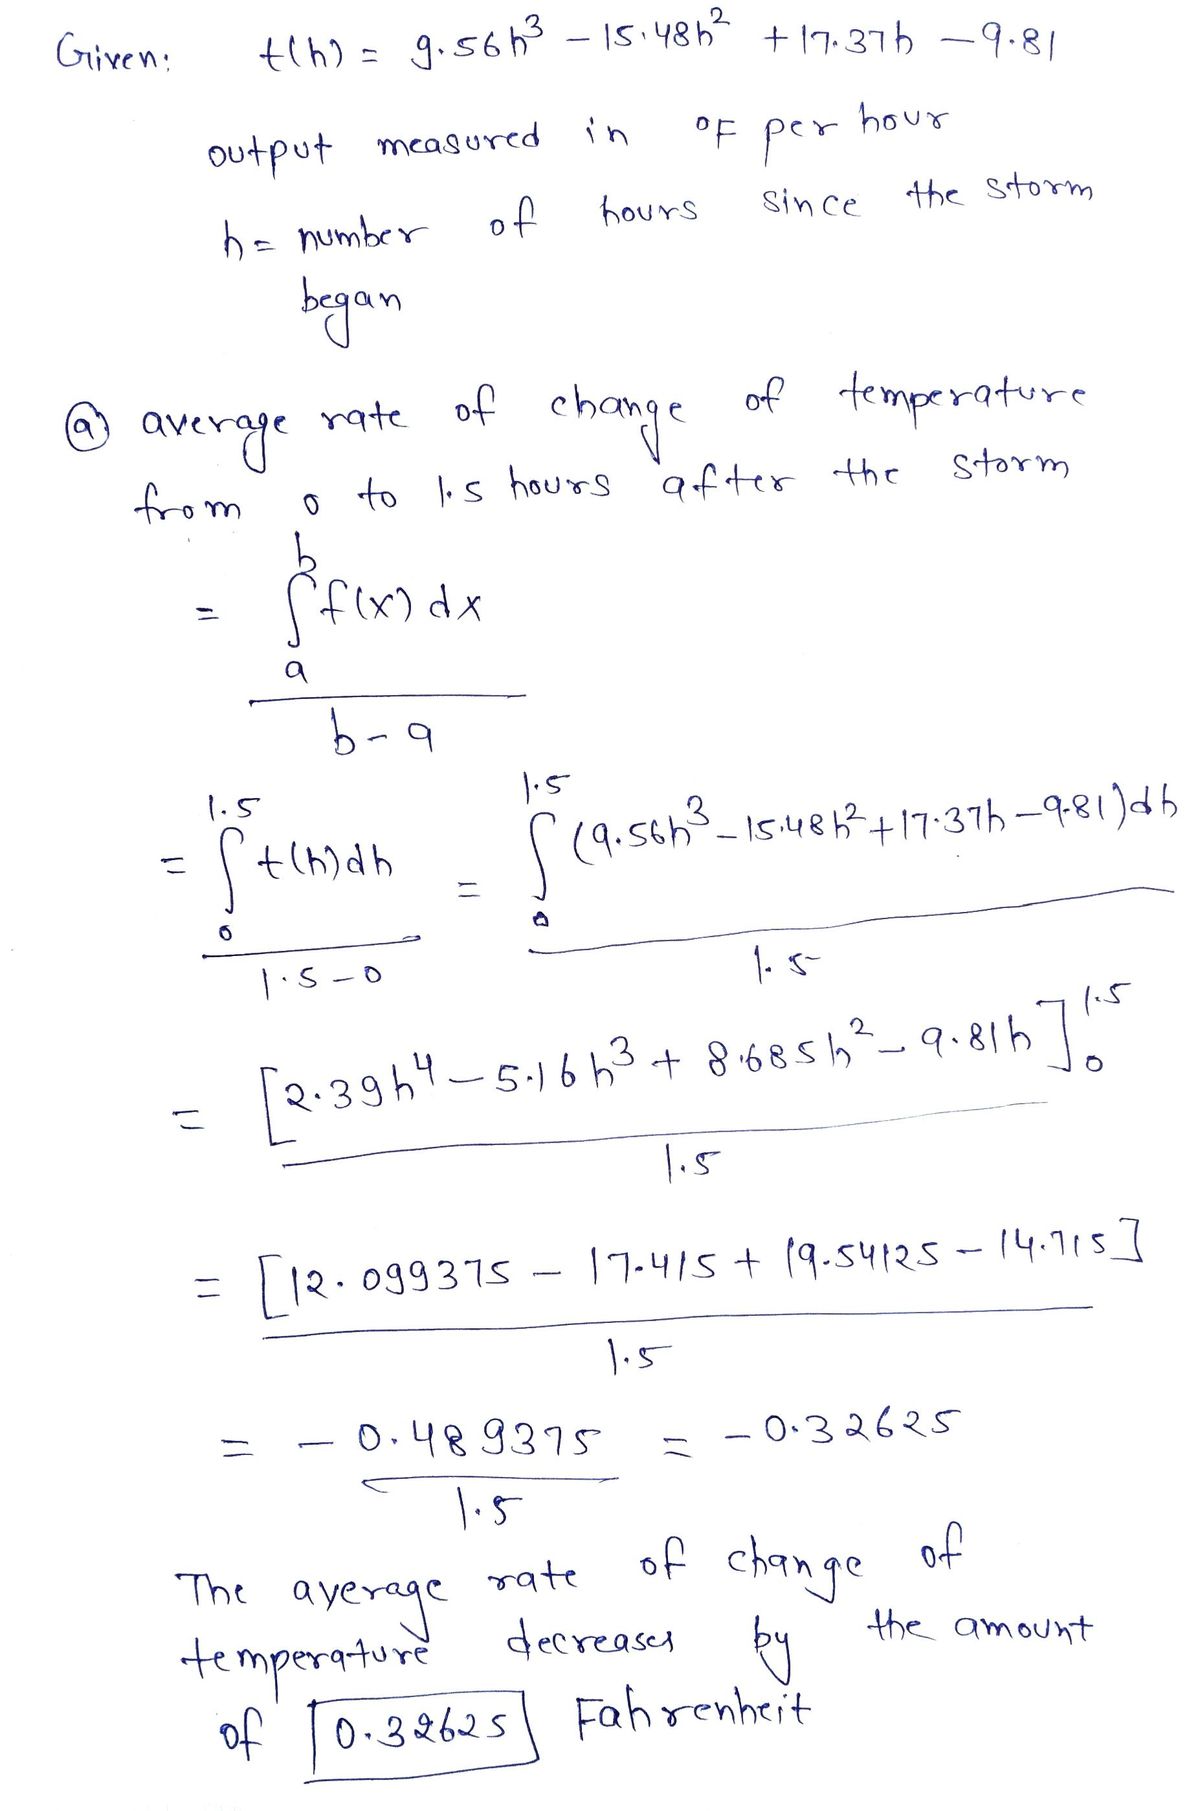 Given: t(h) = 9.56h³ - 15.48h² + 17.37h - 9.81
output measured in °F per hour
h = number of hours since the storm
began
(a) average rate of change of temperature
from 0 to 1.5 hours after the storm
= ∫ₐᵇ f(x) dx
b - a
= ∫₀^1.5 t(h) dh = ∫₀^1.5 (9.56h³ - 15.48h² + 17.37h - 9.81) dh
1.5 - 0 1.5
= [2.39h⁴ - 5.16h³ + 8.685h² - 9.81h]₀^1.5
1.5
= [12.099375 - 17.415 + 19.54125 - 14.715]
1.5
= - 0.489375 = - 0.32625
1.5
The average rate of change of
temperature decreases by the amount
of 0.32625 Fahrenheit